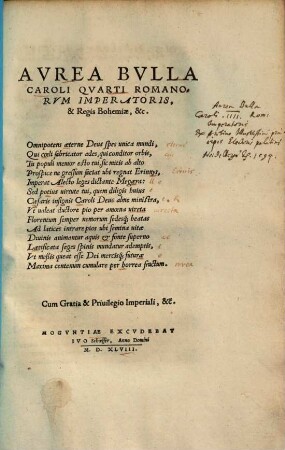 AVREA BVLLA
CAROLI QVARTI ROMANO-
RVM IMPERATORIS,
& Regis Bohemiæ, &c.
Omnipotens æterne Deus spes unica mundi,
Qui cœli fabricator ades, qui conditor orbis,
Tu populi memor esto tui, sic mitis ab alto
Prospice ne gressum faciat ubi regnat Erinnys,
Imperat Alecto leges dictante Megæra:
Sed potius uirtute tui, quem diligis huius
Cæsaris insignis Caroli Deus alme ministra,
Vt ualeat ductore pio per amœna uireta
Florentum semper nemorum sedesq; beatas
Ad latices intrare pios ubi semina uitæ
Diuinis animantur aquis & fonte superno
Lætificata seges spinis mundatur ademptis,
Vt messis queat esse Dei mercisq; futuræ
Maxima centenum cumulare per horrea fructum.
Cum Gratia & Priuilegio Imperiali, &c.
MOGVNTIAE EXCVDEBAT
IVO Schœffer, Anno Domini
M. D. XLVIII.
Aurea Bulla
Caroli IIII. Romani
Imperatoris